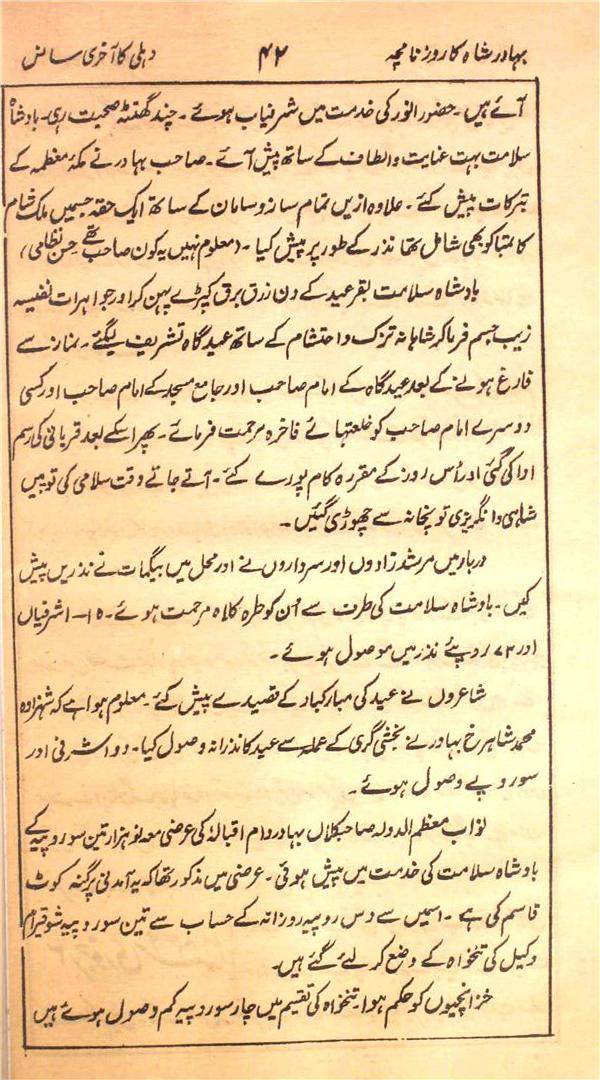 بہادر شاہ کا روزنامچہ ۴۲ دہلی کا آخری سانس
آئے ہیں۔ حضور انور کی خدمت میں شرفیاب ہوئے۔ چند گھنٹہ صحبت رہی۔ بادشاہ
سلامت بہت عنایت و الطاف کے ساتھ پیش آئے۔ صاحب بہادر نے مکۂ معظمہ کے
تبرکات پیش کئے۔ علاوہ ازیں تمام ساز و سامان کے ساتھ ایک حقہ جسمیں ملک شام
کا تمباکو بھی شامل تھا نذر کے طور پر پیش کیا۔ (معلوم نہیں یہ کون صاحب تھے حسن نظامی)
بادشاہ سلامت بقرعید کے دن زرق برق کپڑے پہن کر اور جواہرات نفیسہ
زیب جسم فرما کر شاہانہ تزک و احتشام کے ساتھ عیدگاہ تشریف لیگئے۔ نماز سے
فارغ ہونے کے بعد عیدگاہ کے امام صاحب اور جامع مسجد کے امام صاحب اور کسی
دوسرے امام صاحب کو خلعتہائے فاخرہ مرحمت فرمائے۔ پھر اسکے بعد قربانی کی رسم
ادا کی گئی اور اُس روز کے مقررہ کام پورے کئے۔ آتے جاتے وقت سلامی کی توپیں
شاہی و انگریزی توپخانہ سے چھوڑی گئیں۔
دربار میں مرشد زادوں اور سرداروں نے اور محل میں بیگمات نے نذریں پیش
کیں۔ بادشاہ سلامت کی طرف سے اُن کو طرہ کلاہ مرحمت ہوئے۔ ۱۵۔ اشرفیاں
اور ۷۳ روپئے نذر میں موصول ہوئے۔
شاعروں نے عید کی مبارکباد کے قصیدے پیش کئے۔ معلوم ہوا ہے کہ شہزادہ
محمد شاہرخ بہادر نے بخشی گری کے عملہ سے عید کا نذرانہ وصول کیا۔ دو اشرفی اور
سو روپے وصول ہوئے۔
نواب معظم الدولہ صاحب کلاں بہادر دام اقبالہٗ کی عرضی معہ نو ہزار تین سو روپیہ کے
بادشاہ سلامت کی خدمت میں پیش ہوئی۔ عرضی میں مذکور تھا کہ یہ آمدنی پرگنہ کوٹ
قاسم کی ہے۔ اسمیں سے دس روپیہ روزانہ کے حساب سے تین سو روپیہ
وکیل کی تنخواہ کے وضع کر لئے گئے ہیں۔
خزانچیوں کو حکم ہوا۔ تنخواہ کی تقسیم میں چار سو روپیہ کم وصول ہوئے ہیں